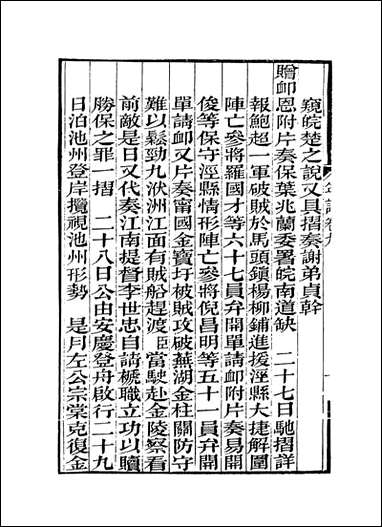 窺皖楚之說又具摺奏謝弟貞幹
贈卹恩附片奏保葉兆蘭委署皖南道缺 二十七日馳摺詳
報鮑超一軍破賊於馬頭鎮楊柳鋪進援涇縣大捷解圍
陣亡參將羅國才等六十七員弁開單請卹附片奏易開
俊等保守涇縣情形陣亡參將倪昌明等五十一員弁開
單請卹又片奏甯國金寶圩被賊攻破蕪湖金柱關防守
難以鬆勁九洑洲江面有賊船趕渡臣當駛赴金陵察看
前敵是日又代奏江南提督李世忠自請褫職立功以贖
勝保之罪一摺 二十八日公由安慶登舟啟行二十九
日泊池州登岸攬視池州形勢 是月左公宗棠克復金
年譜卷九